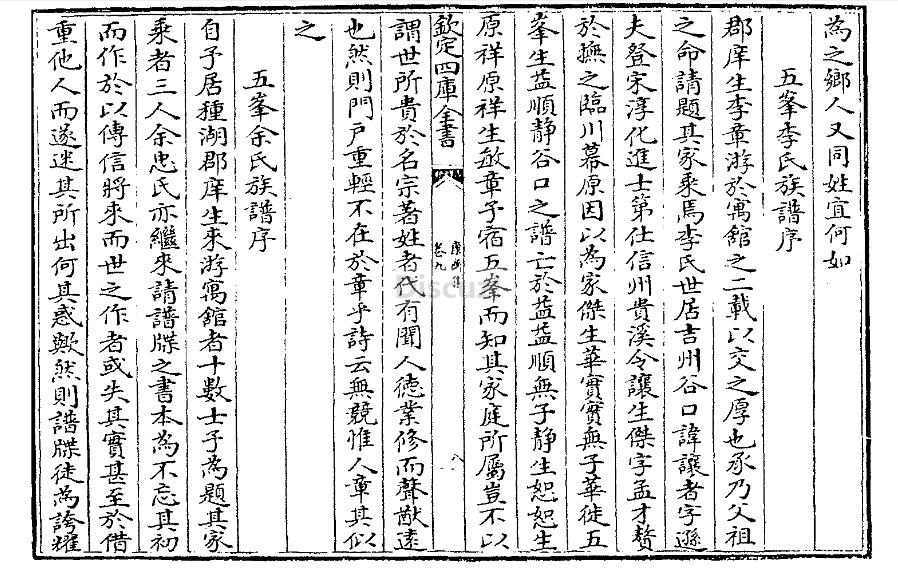 為之鄉人又同姓宜何如
五峯李氏族譜序
郡庠生李章游於寓館之二載以交之厚也承乃父祖
之命請題其家乘焉李氏世居吉州谷口諱讓者字遜
夫登宋淳化進士第仕信州貴溪令讓生傑字孟才贅
於撫之臨川幕原因以為家傑生華實實無子華徙五
峯生益順静谷口之譜亡於益益順無子静生恕恕生
原祥原祥生敏章子宿五峯而知其家庭所屬豈不以
欽定四庫全書
卷九
八
謂世所貴於名宗著姓者代有聞人德業修而聲猷遠
也然則門戸重輕不在於章乎詩云無競惟人章其似
之
五峯余氏族譜序
自予居種湖郡庠生來游寓館者十數士子為題其家
乘者三人余忠氏亦繼來請譜牒之書本為不忘其初
而作於以傳信將來而世之作者或失其實甚至於借
重他人而遂迷其所出何其惑歟然則譜牒徒為誇耀